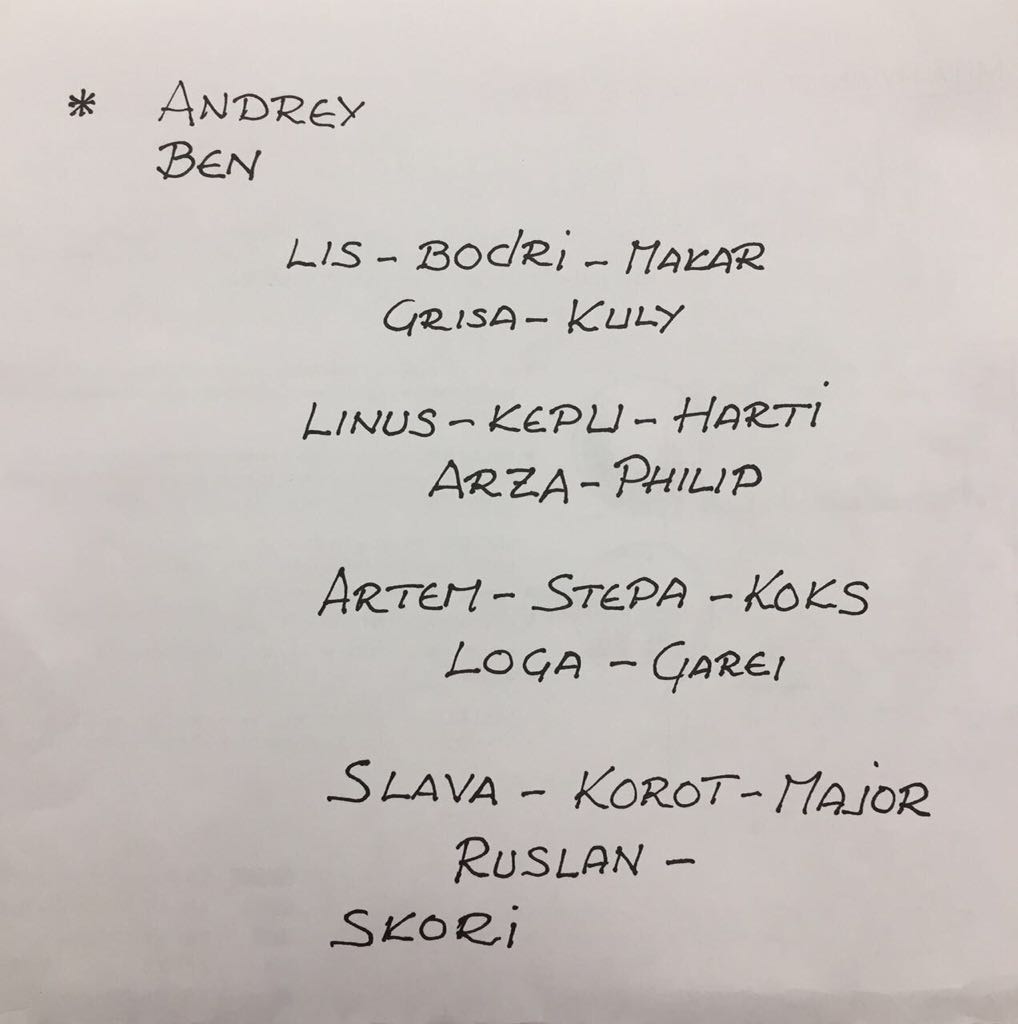 * ANDREY
BEN
LIS - BODRI - MAKAR
GRISA - KULY
LINUS - KEPLI - HARTI
ARZA - PHILIP
ARTEM - STEPA - KOKS
LOGA - GAREI
SLAVA - KOROT - MAJOR
RUSLAN -
SKORI